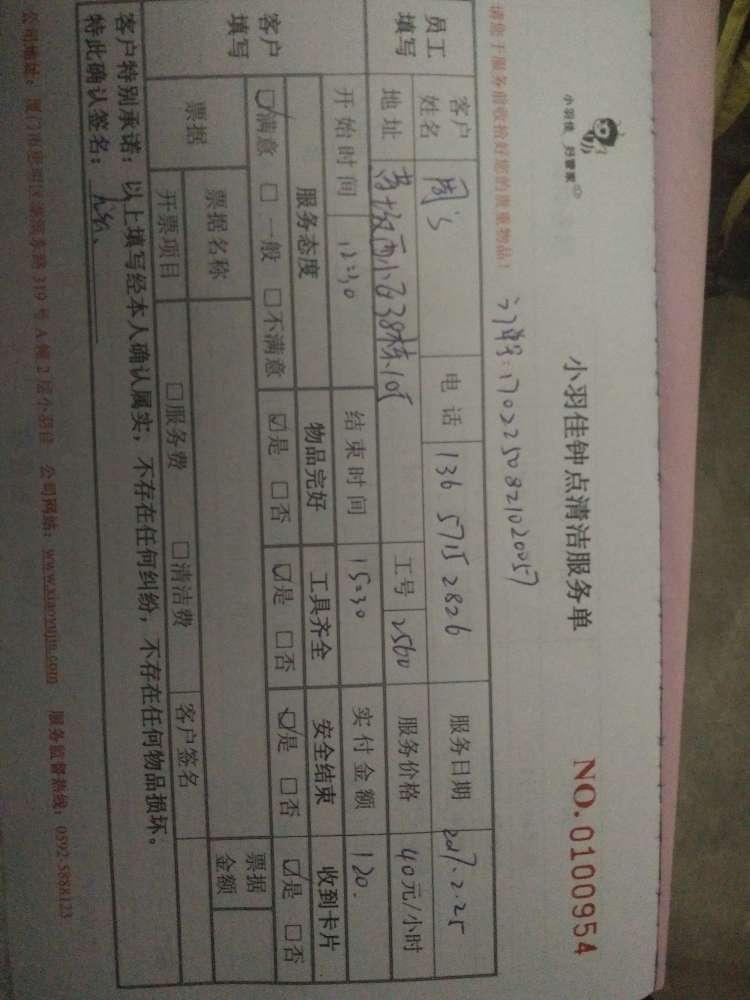 小羽佳 好管家
小羽佳钟点清洁服务单
NO.0100954
请您于服务前收拾好您的贵重物品!
订单号:1702250821020057
员工填写
客户姓名 周's 电话 136 5715 2826 服务日期 2017.2.25
地址 38栋105 工号 2560 服务价格 40元/小时
开始时间 12:30 结束时间 15:30 实付金额 120.
客户填写
服务态度 物品完好 工具齐全 安全结束 收到卡片
☑满意 □一般 □不满意 ☑是 □否 ☑是 □否 ☑是 □否 ☑是 □否
票据 票据名称 票据金额
开票项目 □服务费 □清洁费 客户签名
客户特别承诺:以上填写经本人确认属实,不存在任何纠纷,不存在任何物品损坏。
特此确认签名:
公司地址:厦门市思明区湖滨东路319号A幢2层小羽佳 公司网站:www.xiaoyujia.com 服务监督热线:0592-5888123